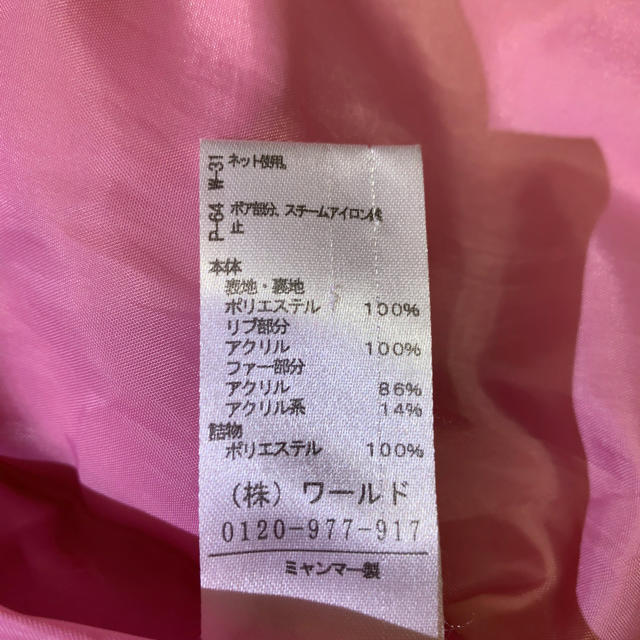 W-31 ネット使用。
P-64 ボア部分、スチームアイロン
止
本体
表地・裏地
ポリエステル 100%
リブ部分
アクリル 100%
ファー部分
アクリル 86%
アクリル系 14%
詰物
ポリエステル 100%
（株）ワールド
0120-977-917
ミャンマー製